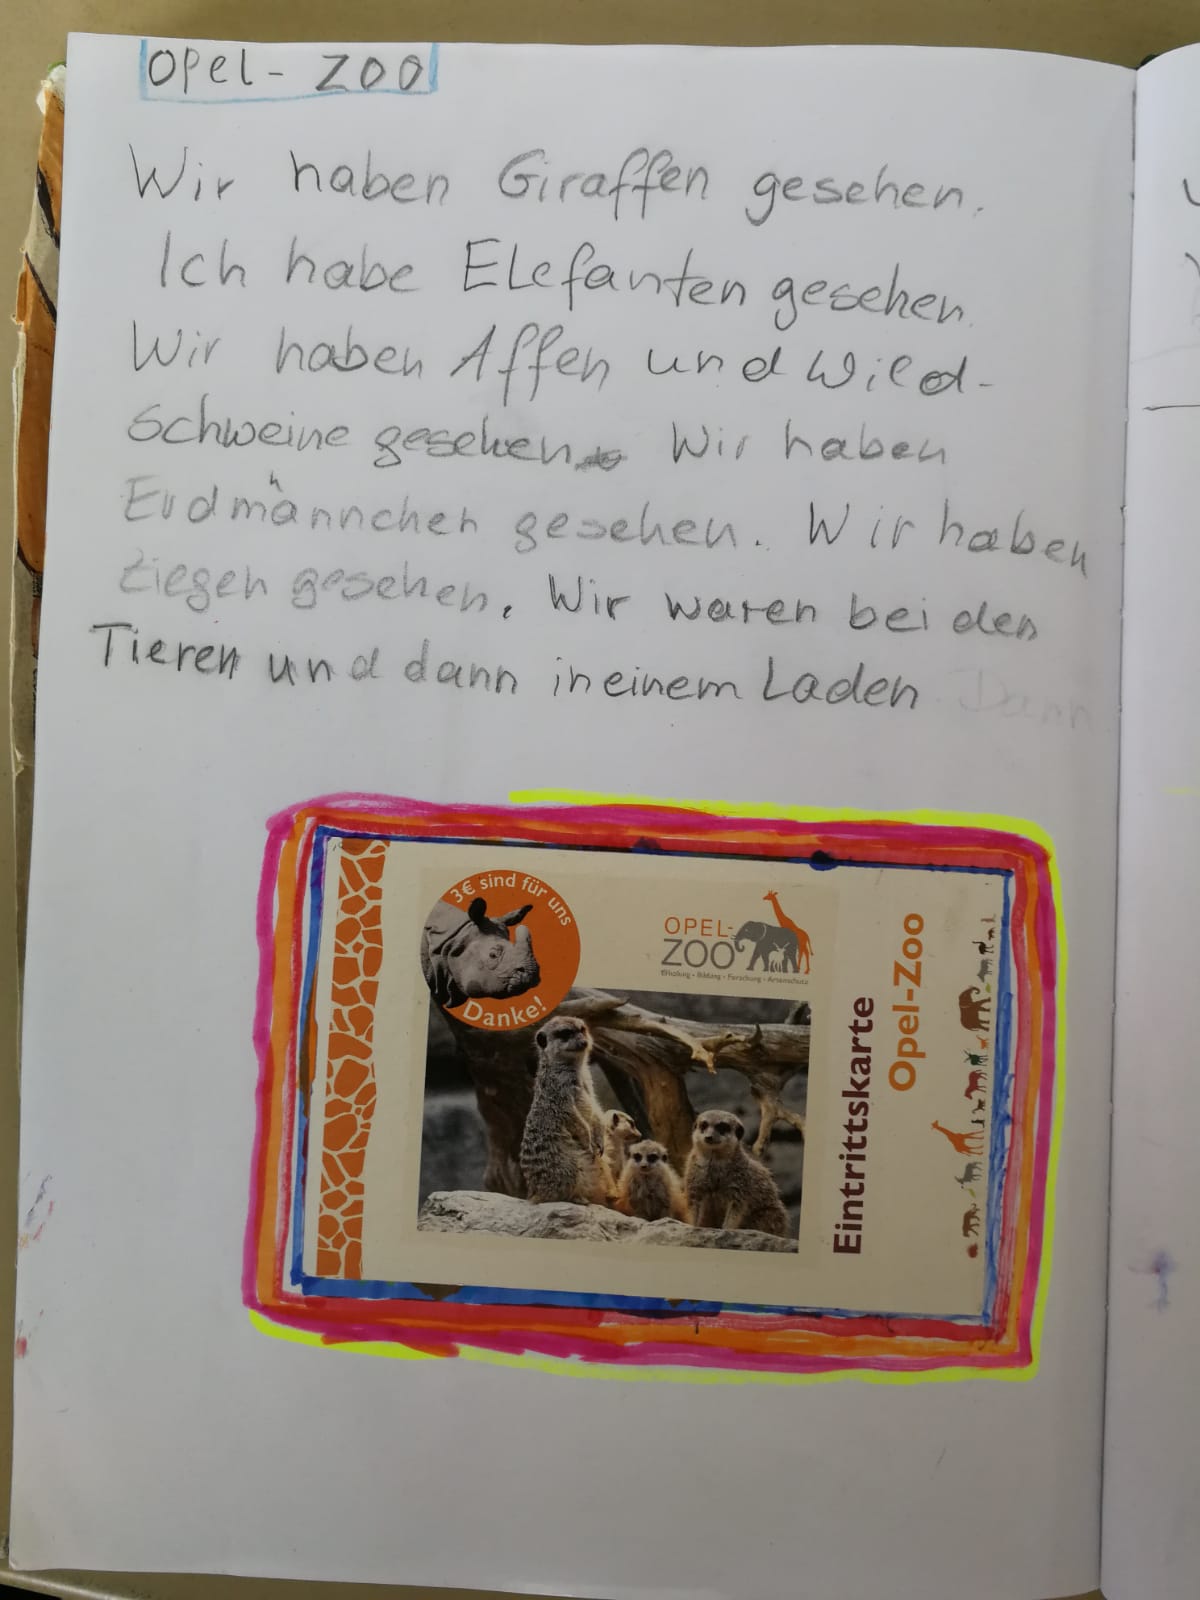 Opel- Zoo
Wir haben Giraffen gesehen.
Ich habe Elefanten gesehen.
Wir haben Affen und Wild-
schweine gesehen. Wir haben
Erdmännchen gesehen. Wir haben
Ziegen gesehen. Wir waren bei den
Tieren und dann in einem Laden
Dann
3€ sind für uns
Danke!
OPEL-
ZOO
Haltung • Bildung • Forschung • Artenschutz
Eintrittskarte
Opel-Zoo